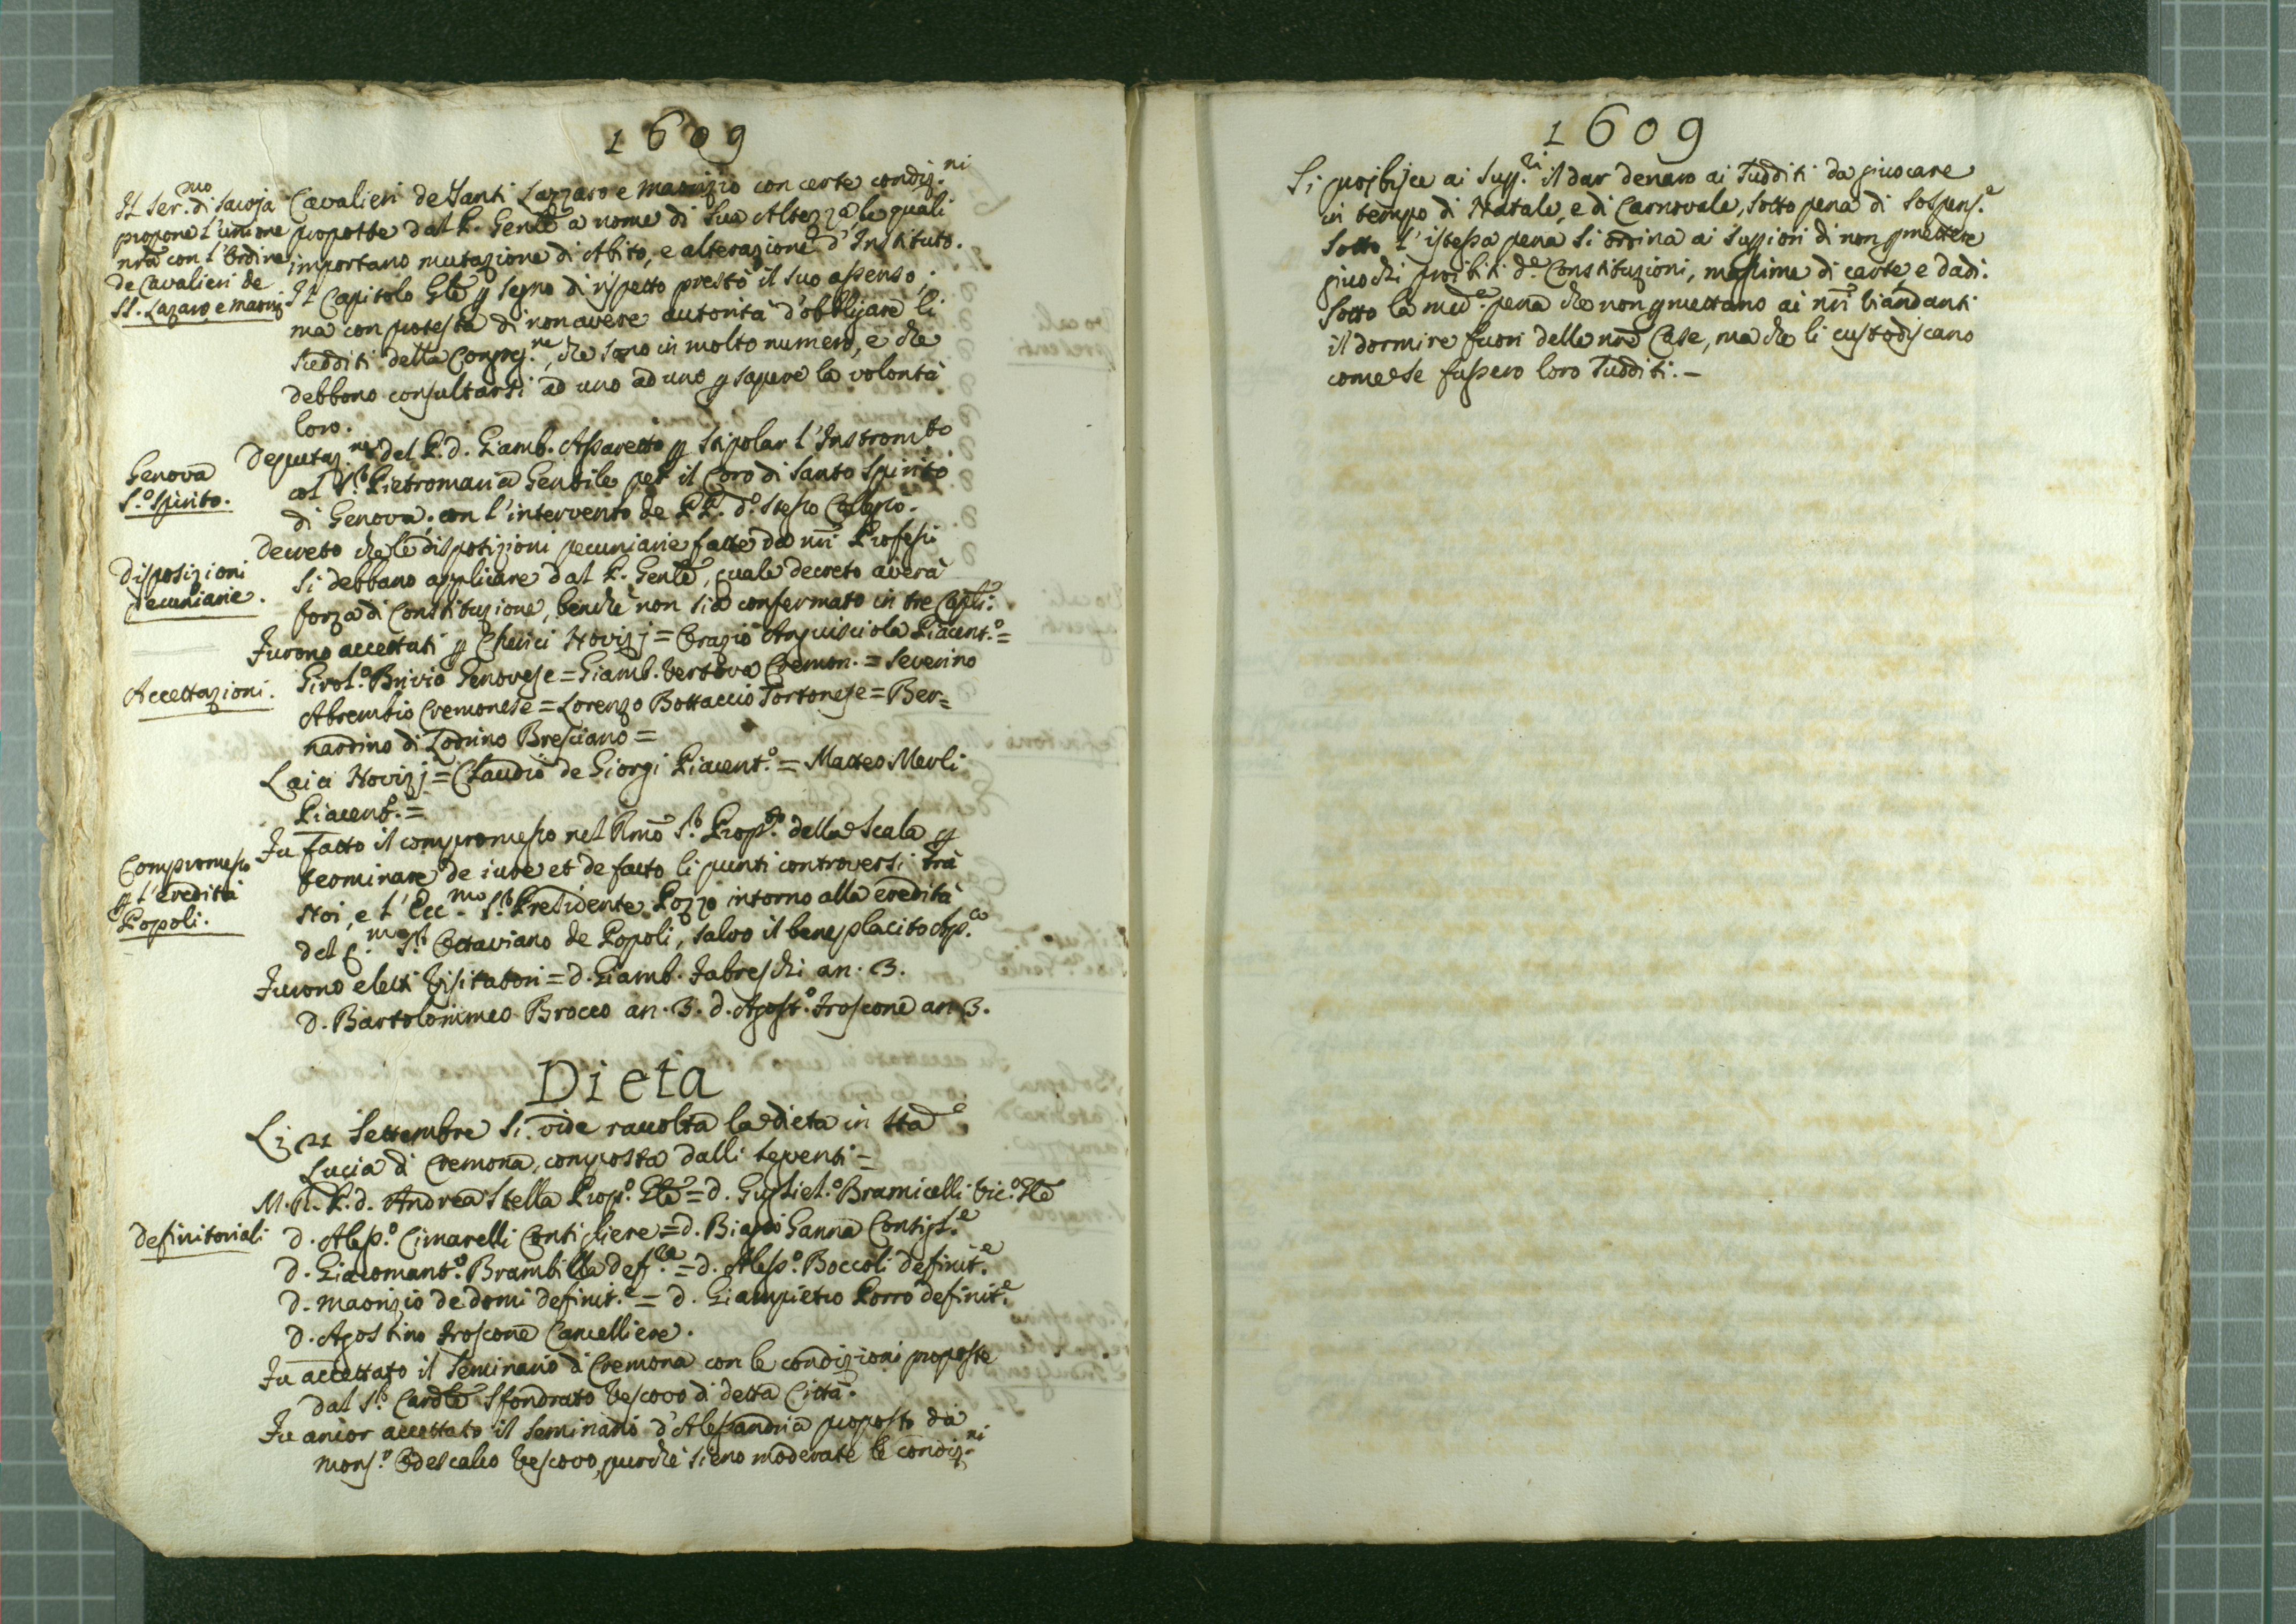 1609
Il Ser.mo di Savoja
propone l'unione
nrã con l'Ordine
de Cavalieri de
SS. Lazaro, e Mauriz
Cavalieri de Santi Lazzaro e Maurizio con certe condiz.ni
proposte dal P. Genle a nome di Sua Altezza le quali
importano mutazione di Abito, e alterazione d'Instituto.
Il Capitolo Gle p segno di rispetto prestò il suo assenso;
ma con protesta di non avere autorità d'obbligare li
Sudditi della Congreg.ne, che sono in molto numero, e che
debbono consultarsi ad uno ad uno p sapere la volontà
loro.
Genova
S.o Spirito.
Deputaz.ne del P. d. Giamb. Assaretto p stipolar l'Instrom.to
col S.r Pietromaria Gentile per il Coro di Santo Spirito
di Genova, con l'intervento de PP. d.o stesso Collegio.
Disposizioni
Pecuniarie.
Decreto che le disposizioni pecuniarie fatte da nri Professi
si debbano applicare dal P. Genle, quale decreto averà
forza di Constituzione, benchè non sia confermato in tre Capli:
Accettazioni.
Furono accettati p Cherici Novizj = Orazio Anguisciola Piacent.o =
Girol.o Brivio Genovese = Giamb. Vertova Cremon. = Severino
Abrembio Cremonese = Lorenzo Bottaccio Tortonese = Ber=
nardino di Lodrino Bresciano =
Laici Novizj = Claudio de Giorgi Piacent.o = Matteo Merli
Piacent.o =
Compromesso
p l'eredità
Popoli.
Fu fatto il compromesso nel Rmo S.r Prop.to della Scala p
terminare de iure et de facto li punti controversi trà
Noi, e l'Ecc.mo S.r Presidente Pozzo intorno alla eredità
del q. S.r Octaviano de Popoli, salvo il beneplacito Ap.co
Furono eletti Visitatori = d. Giamb. Fabreschi an. 3.
d. Bartolommeo Brocco an. 3. d. Agost.o Froscone an. 3.
Dieta
Li 21 Settembre si vide raccolta la dieta in Sta
Lucia di Cremona, composta dalli seguenti =
M. R. P. d. Andrea Stella Prop.o Gle = d. Gugliel.o Bramicelli Vic.o Gle
Definitoriali
d. Aless.o Cimarelli Consigliere = d. Biagio Ganna Consigl.e
d. Giacomant.o Brambilla def.re = d. Aless.o Boccoli definit.e
d. Maurizio de domi definit.e = d. Giampietro Porro definit.e
d. Agostino Froscone Cancelliere.
Fu accettato il Seminario di Cremona con le condizioni proposte
dal S.r Cardle Sfondrato Vescovo di detta Città.
Fu ancor accettato il Seminario d'Alessandria proposto da
Mons.r Odescalco Vescovo, purchè sieno moderate le condiz.ni
1609
Si proibisce ai Sup.ri il dar denaro ai Sudditi da giuocare
in tempo di Natale, e di Carnovale, sotto pena di Sospens.e
Sotto l'istessa pena si ordina ai Suppiori di non pmettere
giuochi proibiti d.e Constituzioni, massime di carte, e dadi.
Sotto la med.a pena che non pmettano ai nri Viandanti
il dormire fuori delle nre Case, ma che li custodiscano
come se fussero loro Sudditi. –